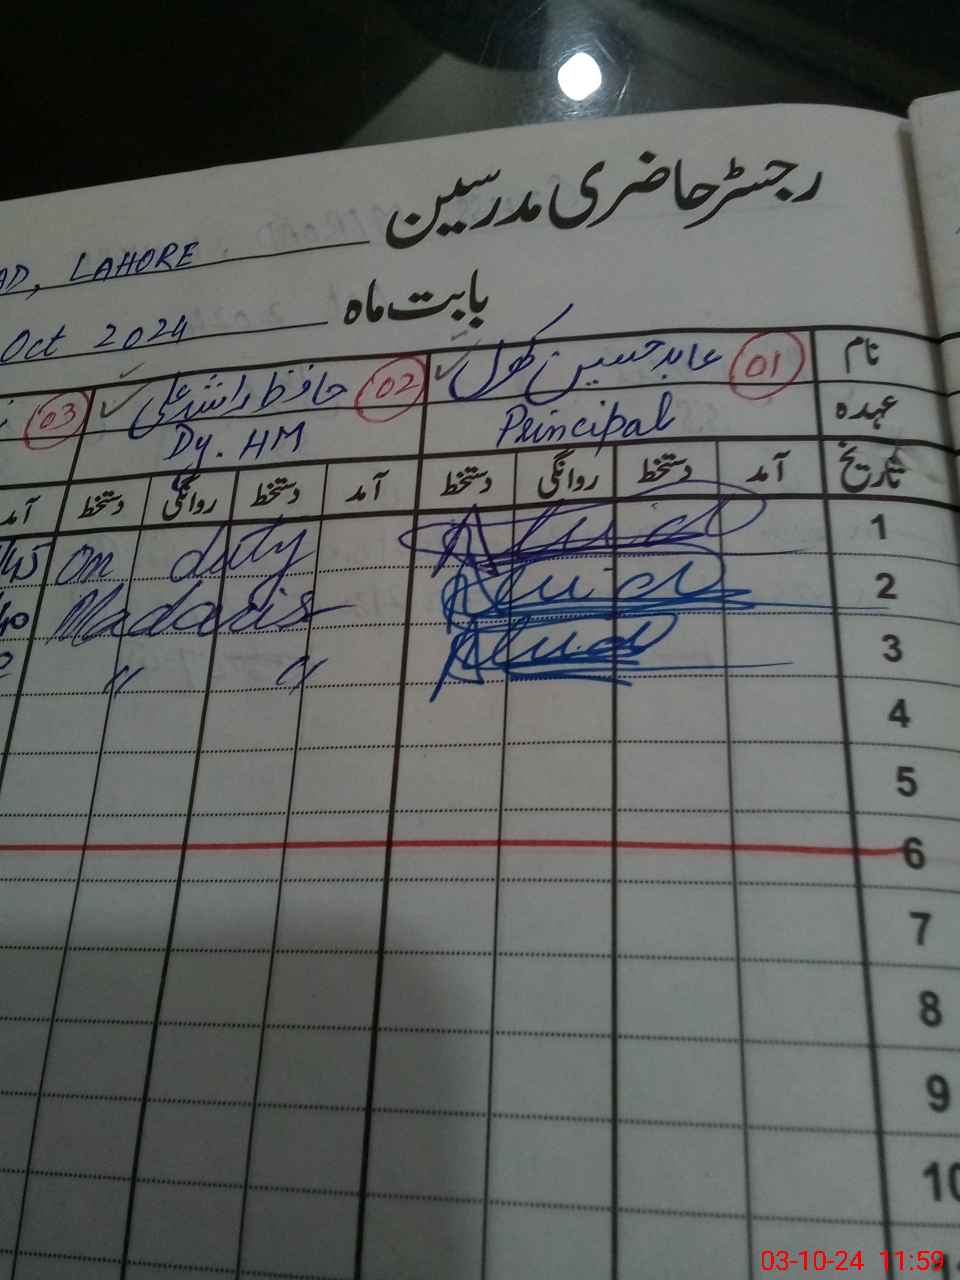 رجسٹر حاضری مدرسین
AD, LAHORE
بابت ماہ
Oct 2024
نام 01 عابد حسین کھرل 02 حافظ راشد علی 03
عہدہ Principal Dy. HM
تاریخ آمد دستخط روانگی دستخط آمد دستخط روانگی دستخط آمد
1 On duty 45
2 Madaris 40
3 〃 〃
4
5
6
7
8
9
10
03-10-24 11:59